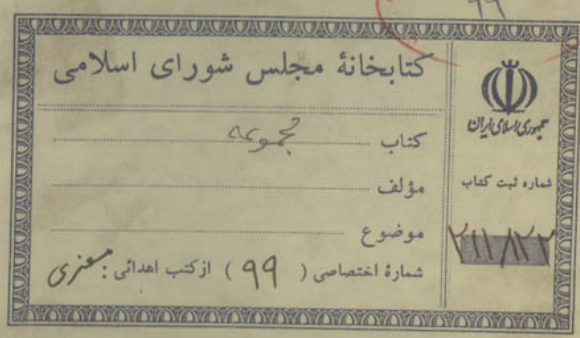 ۹۹
کتابخانهٔ مجلس شورای اسلامی
کتاب مجموعه
مؤلف
موضوع
شمارهٔ اختصاصی ( ۹۹ ) از کتب اهدائی :
جمهوری اسلامی ایران
شماره ثبت کتاب
۲۱۱۸۲۲